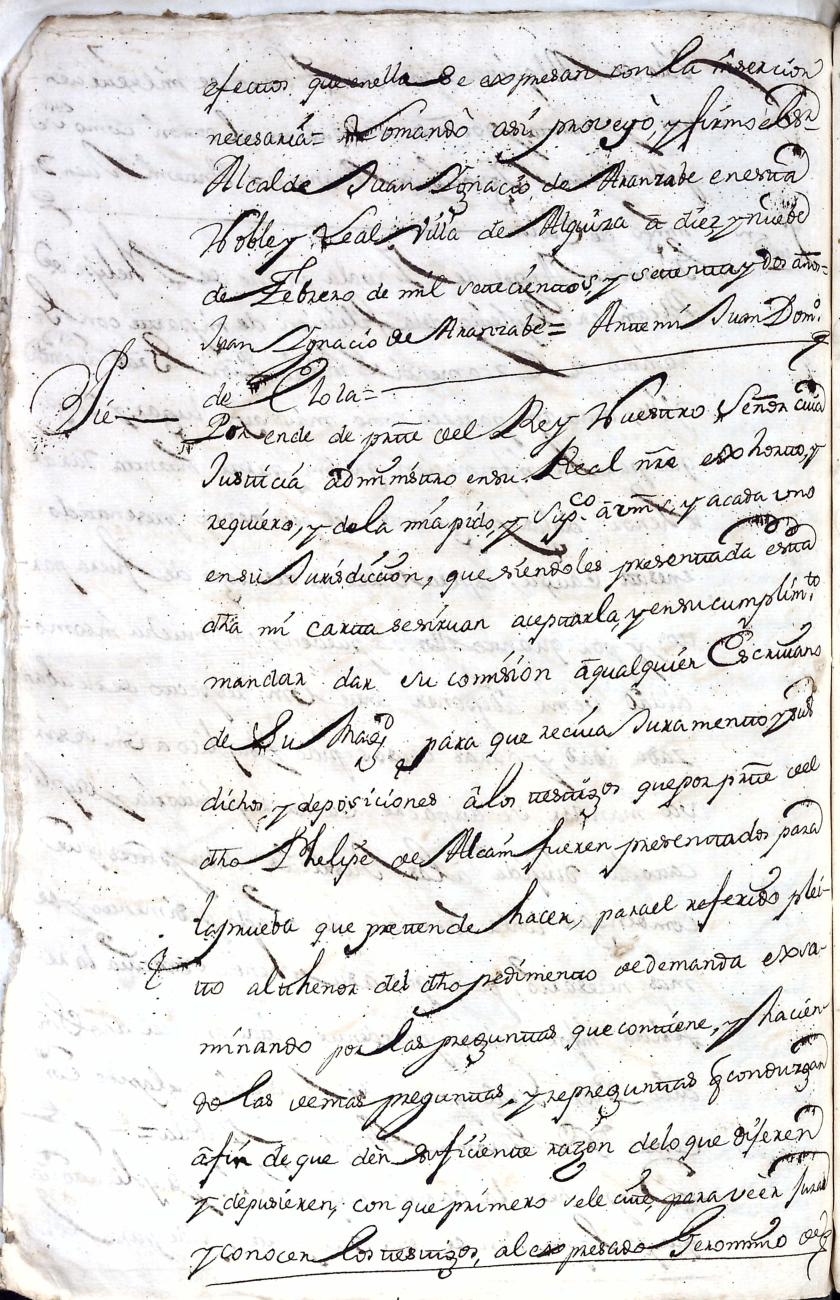 efectos que en ella se expresan con la insercion
necesaria= Lo mandò asi proveyò, y firmo el Sr.
Alcalde Juan Ygnacio de Aranzabe en esta
Noble y Leal Villa de Alquiza a diez y nuebe
de Febrero de mil setecientos, y setenta y dos años=
Juan Ygnacio de Aranzabe= Ante mi Juan Domo.
de Olola=
Pié Por ende de prte del Rey Nuestro Señor cuia
Justicia administro en su Real nre exhorto, y
requiero, y de la mia pido, y supco. a vms, y a cada uno
en su Jurisdiccion, que siendoles presentada esta
dha mi carta se sirvan aceptarla, y en su cumplimto.
mandar dar su comision a qualquier Escrivano
de Su Magd para que reciva Juramento y sus
dichos, y deposiciones a los testigos que por prte del
dho Phelipe de Alcain fueren presentados para
la prueba que pretende hacer, para el referido plei-
to al thenor del dho pedimento de demanda exsa-
minando por las preguntas que contiene, y hacien-
do las demas preguntas, y repreguntas q conduzgan
a fin de que den suficiente razon de lo que dijeren
y depusieren, con que primero se le cite, para veer Jurar
y conocer los testigos, al expresado Geronimo de